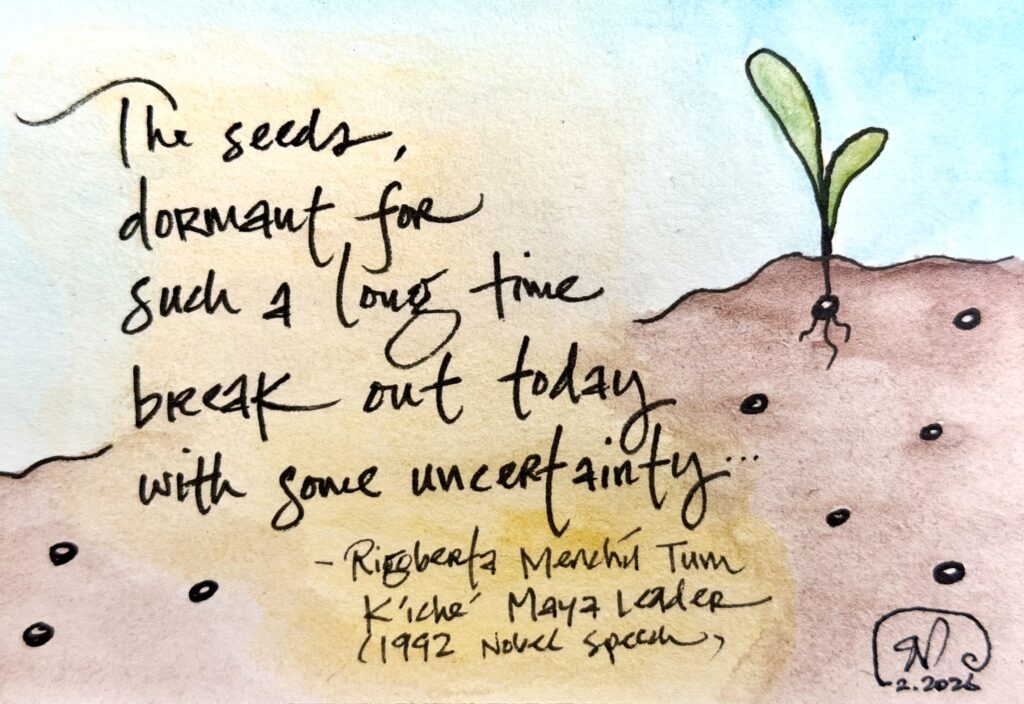 The seeds,
dormant for
such a long time
break out today
with some uncertainty...
- Rigoberta Menchú Tum
K'iche' Maya Leader
(1992 Nobel speech)
2.2026